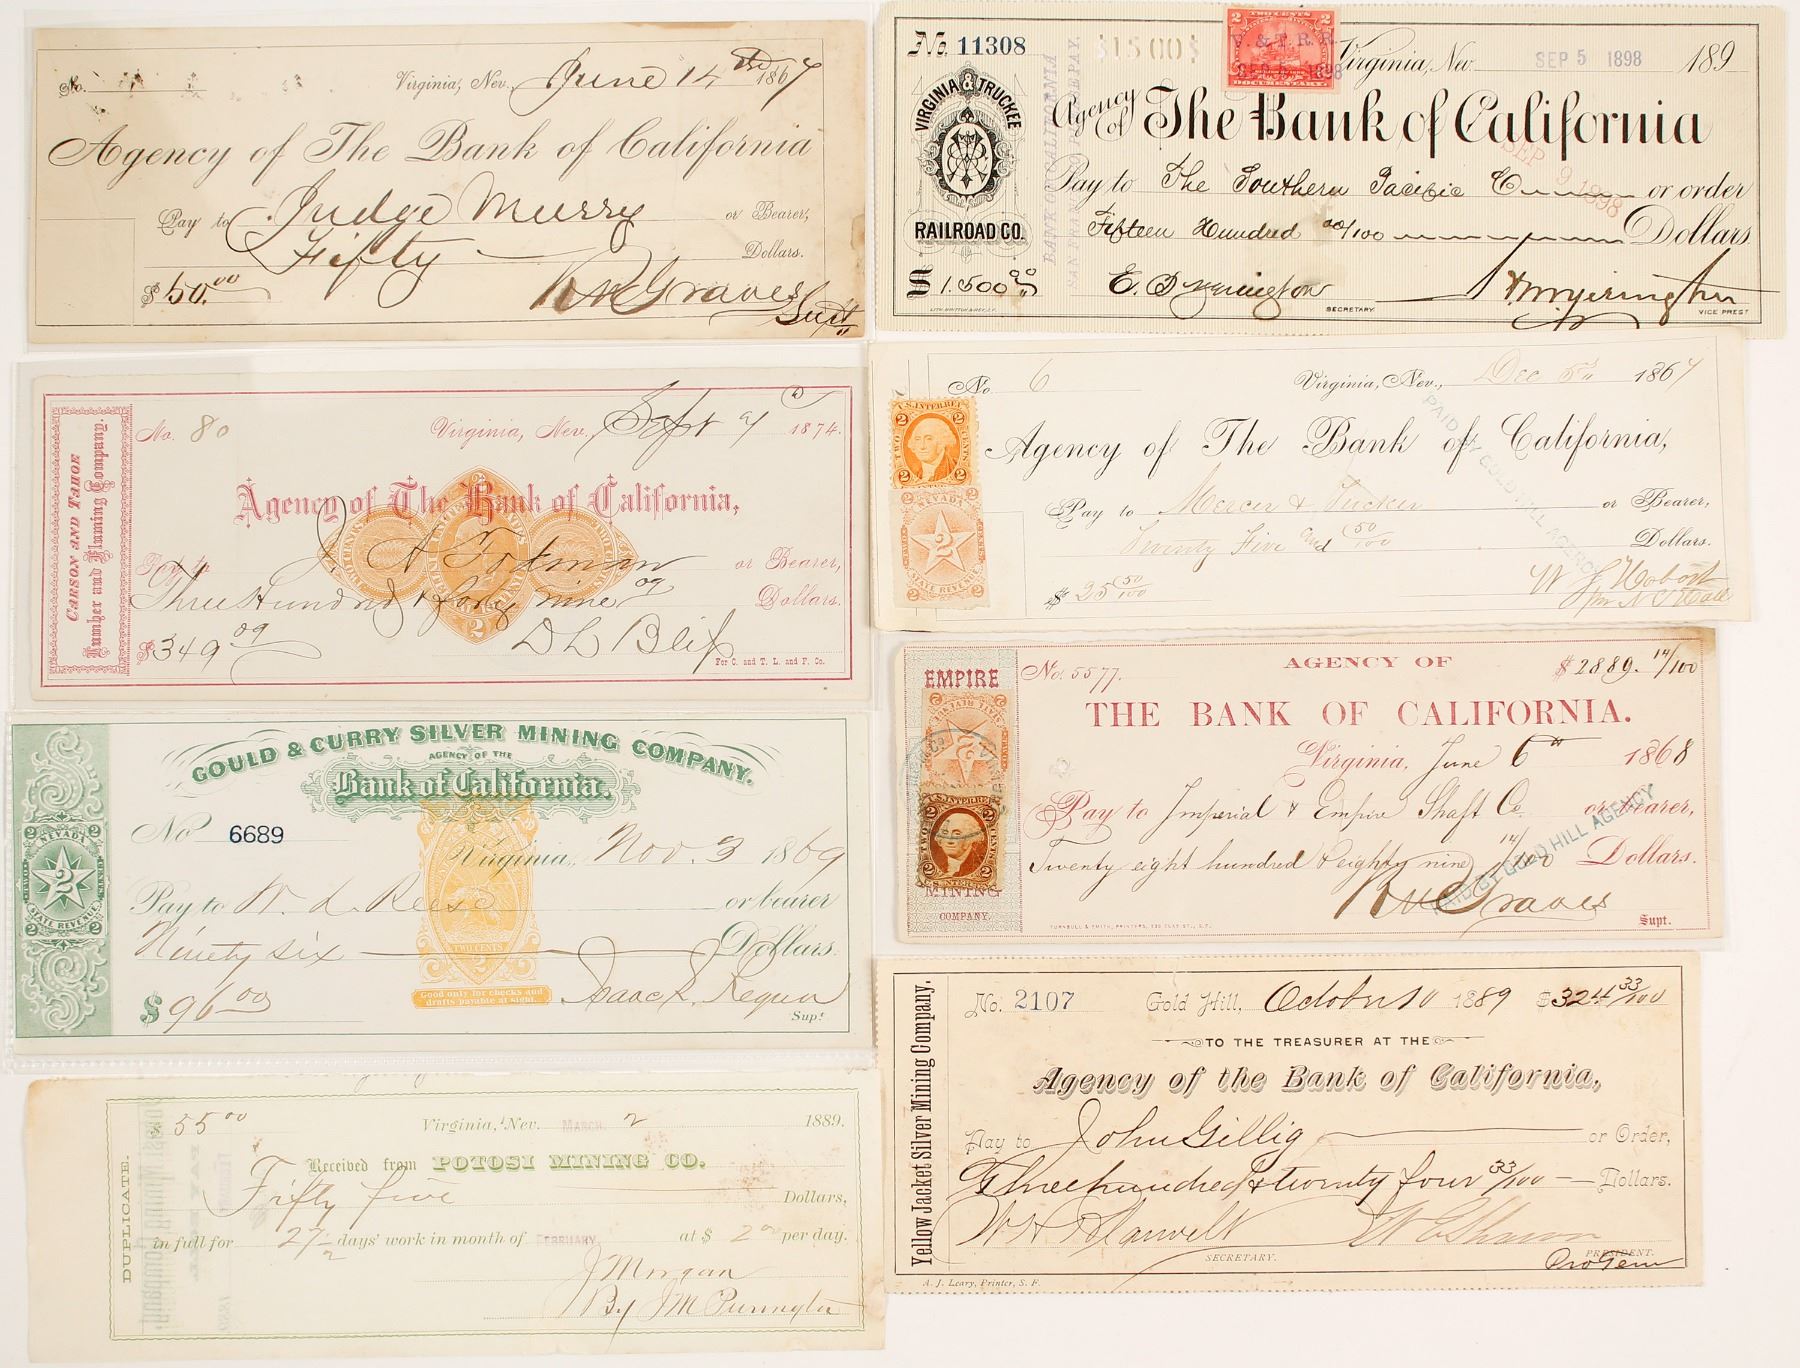 No.
Virginia, Nev., June 14th 1867
Agency of The Bank of California
Pay to Judge Murry or Bearer,
Fifty Dollars.
$50.00 R N Graves Supt
No. 11308
$1500$
V. & T. R. R.
SEP 5 1898
TWO CENTS
DOCUMENTARY
Virginia, Nev. SEP 5 1898 189
VIRGINIA & TRUCKEE
RAILROAD CO.
BANK OF CALIFORNIA
Agency of The Bank of California
SEP 9 1898
Pay to The Southern Pacific Co or order
Fifteen Hundred 00/100 Dollars
$1.500 00
E. B. Yerington SECRETARY.
H M Yerington VICE PREST
CARSON AND TAHOE
Lumber and Fluming Company.
No. 80
Virginia, Nev., Sept 9 1874.
Agency of The Bank of California,
Pay to J. A. Todman or Bearer,
Three Hundred & forty nine 09 Dollars.
$349 09
D L Blif
For C. and T. L. and F. Co.
No. 6 Virginia, Nev., Dec 1867
U.S. INTER REV
TWO CENTS
NEVADA
2
STATE REVENUE
Agency of The Bank of California,
PAID BY GOLD HILL AGENCY
Pay to Mercer & Tucker or Bearer,
Seventy Five and 50/100 Dollars.
$ 25 50/100
W J Hobart
GOULD & CURRY SILVER MINING COMPANY.
AGENCY OF THE
Bank of California.
No 6689
Virginia, Nov. 3 1869
Pay to W. L. Reese or bearer
Ninety six Dollars.
$96 00
Isaac L. Requa
Supt
NEVADA
2
TWO CENTS
STATE REVENUE
TWO CENTS
Good only for checks and
drafts payable at sight.
EMPIRE
MINING
COMPANY.
No. 5577. AGENCY OF $2889. 14/100
THE BANK OF CALIFORNIA.
Virginia, June 6th 1868
Pay to Imperial & Empire Shaft Co or bearer,
Twenty eight hundred & eighty nine 14/100 Dollars.
PAID BY GOLD HILL AGENCY
R N Graves
Supt.
TURNBULL & SMITH, PRINTERS,
DUPLICATE.
$ 55 00 Virginia, Nev. MARCH 2 1889.
Received from POTOSI MINING CO.
Fifty five Dollars,
in full for 27 1/2 days' work in month of FEBRUARY at $ 2 00 per day.
J Morgan
By J M Purington
Yellow Jacket Silver Mining Company.
No. 2107 Gold Hill, October 10 1889 $324 33/100
TO THE TREASURER AT THE
Agency of the Bank of California,
Pay to John Gillig or Order,
Three hundred & twenty four 33/100 Dollars.
SECRETARY.
W E Sharon
PRESIDENT.
Pro Tem
A. J. Leary, Printer, S. F.